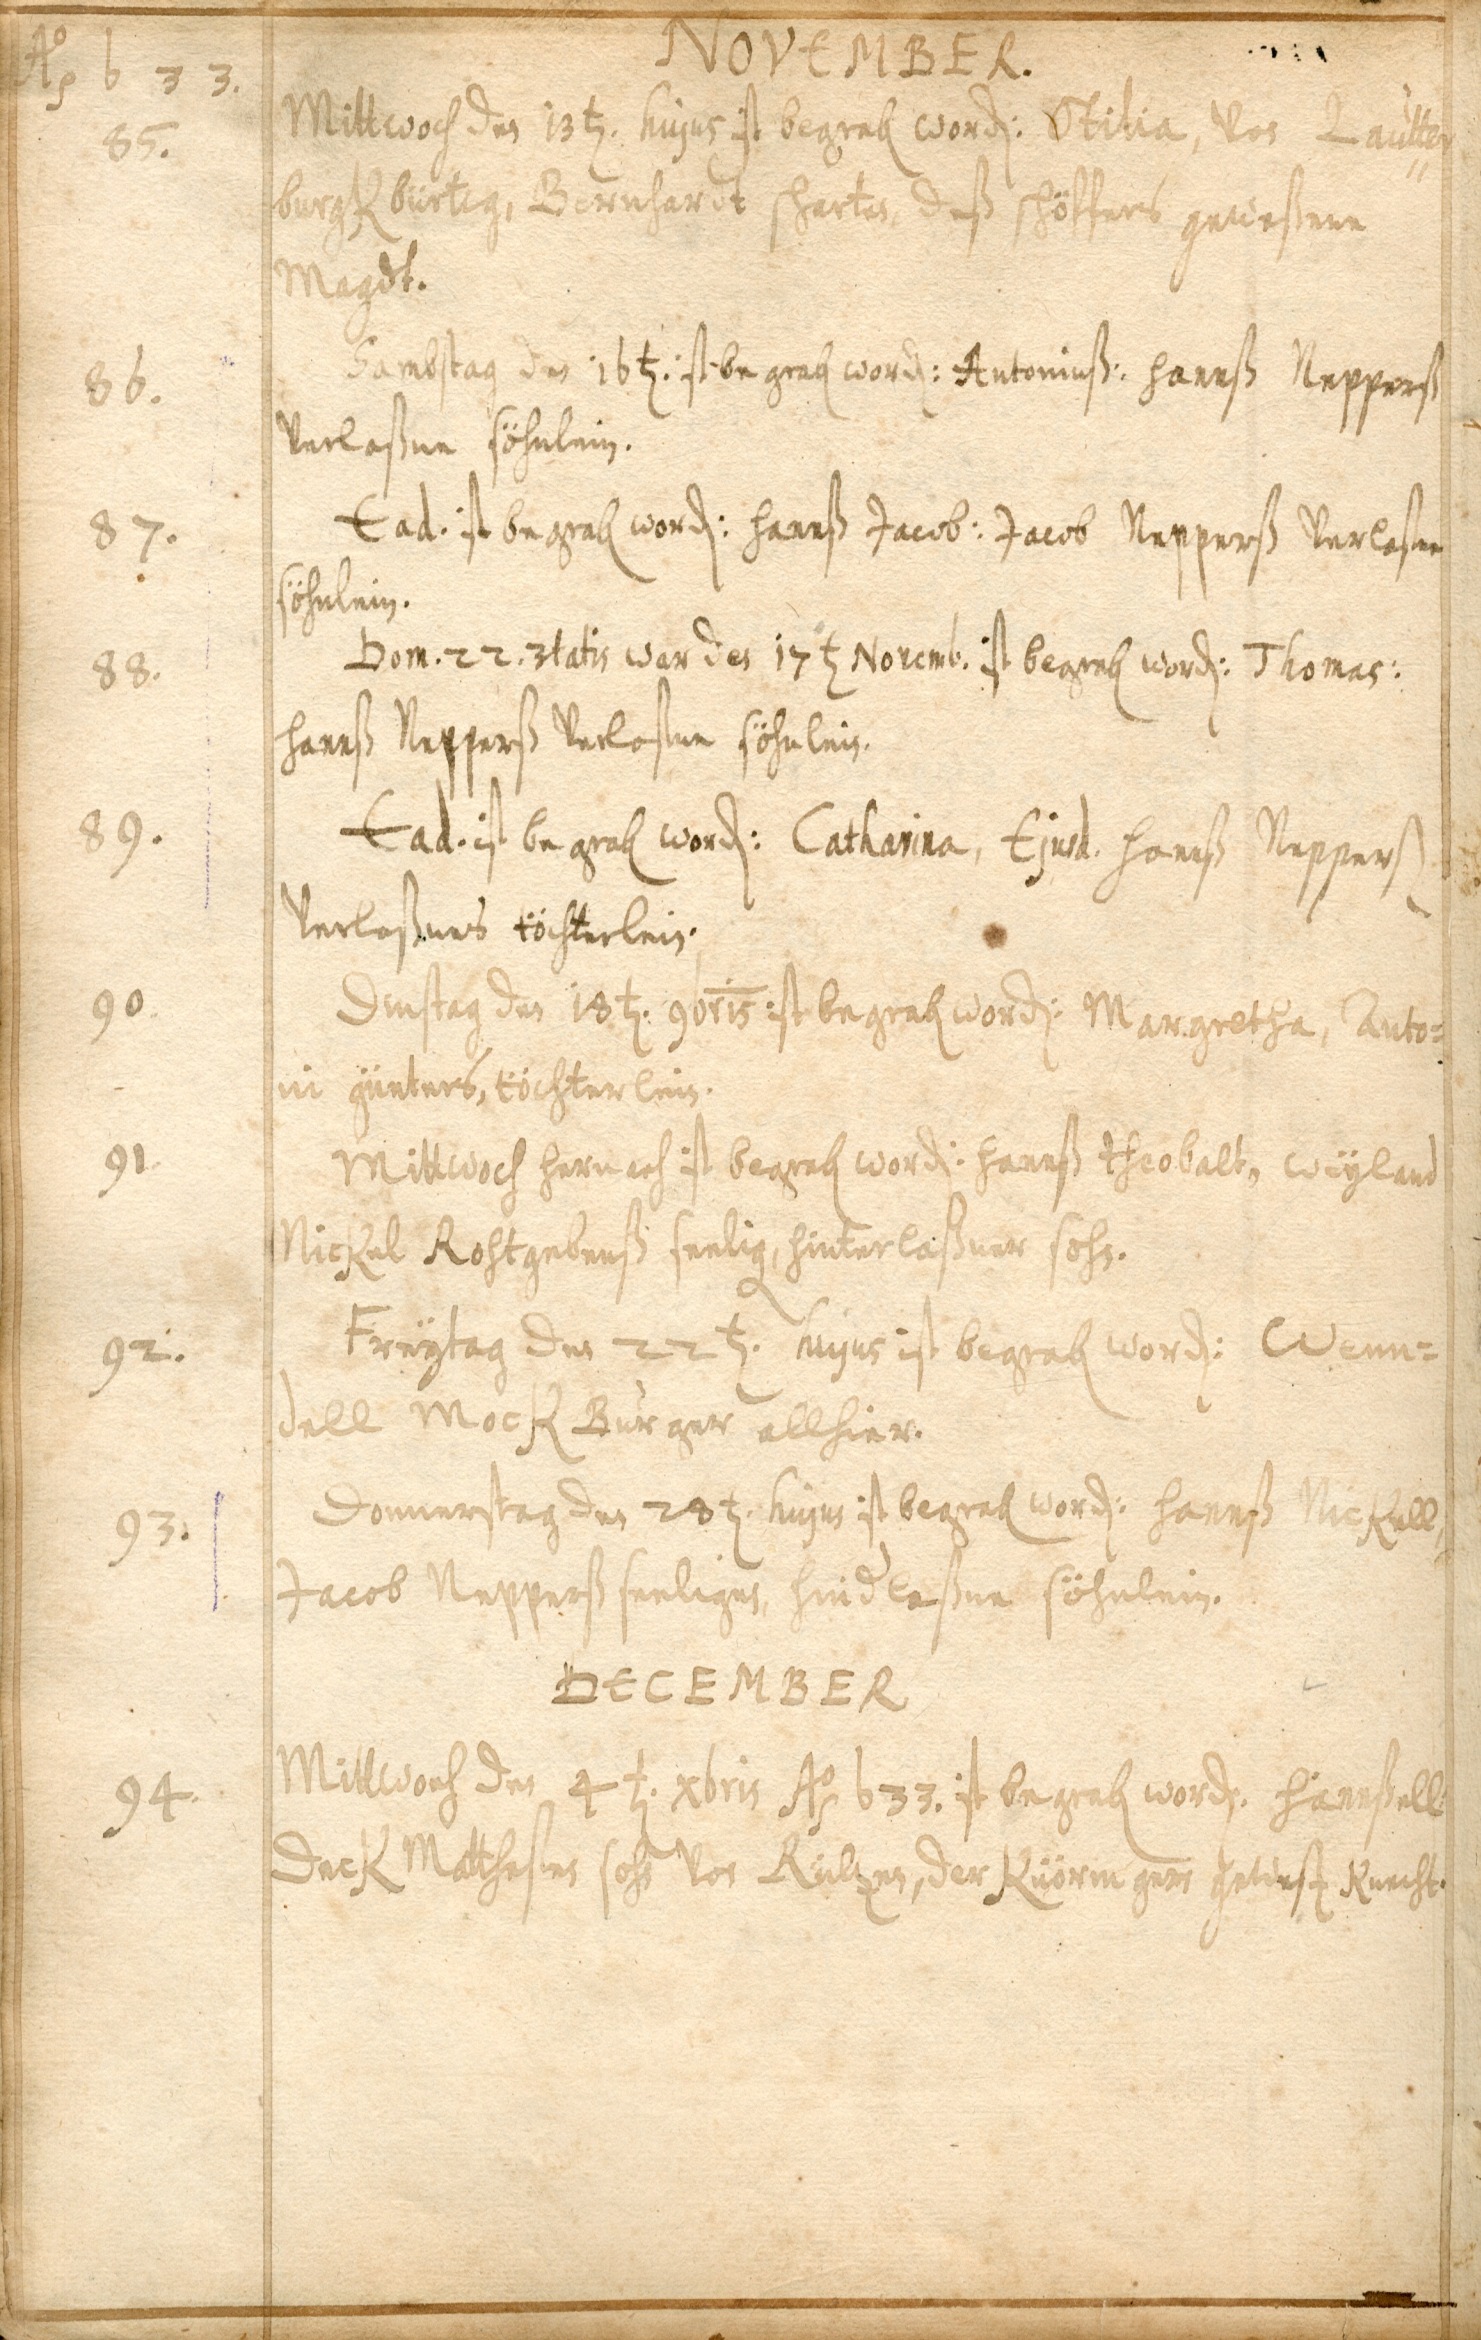 NOVEMBER.
Aο 633.
85.
Mittwoch den 13t. hujus ist begrab word: Otilia, von Lautter
burgk bürtig, Bernhardt schertes, deß schöffers geweßene
Magdt.
86.
Sambstag den 16t. ist begrab word: Antoniuß: hannß Nepperß
verlaßne söhnlein.
87.
Ead. ist begrab word: hannß Jacob: Jacob Nepperß verlaßne
söhnlein.
88.
Dom. 22. 3tatis war den 17t Novemb. ist begrab word: Thomas:
hannß Nepperß verlaßne söhnlein.
89.
Ead. ist begrab word: Catharina, Ejusd. hannß Nepperß
verlaßnes töchterlein.
90.
Dinstag den 18t. 9bris ist begrab word: Margretha, Anto=
ni günters, töchterlein.
91.
Mittwoch hernach ist begrab word: hannß theobalt, weyland
Nickel Rohtgebenß seelig, hinterlaßner sohn.
92.
Freÿtag den 22t. hujus ist begrab word: Wenn=
dell Mock Burger allhier.
93.
Donnerstag den 28t. hujus ist begrab word: hannß Nickell,
Jacob Nepperß seeligen, hindlaßne söhnlein.
DECEMBER
94.
Mittwoch den 4t. xbris Aο 633. ist begrab word. hannßell
Deck Matthesen sohn von der gewest Knecht.